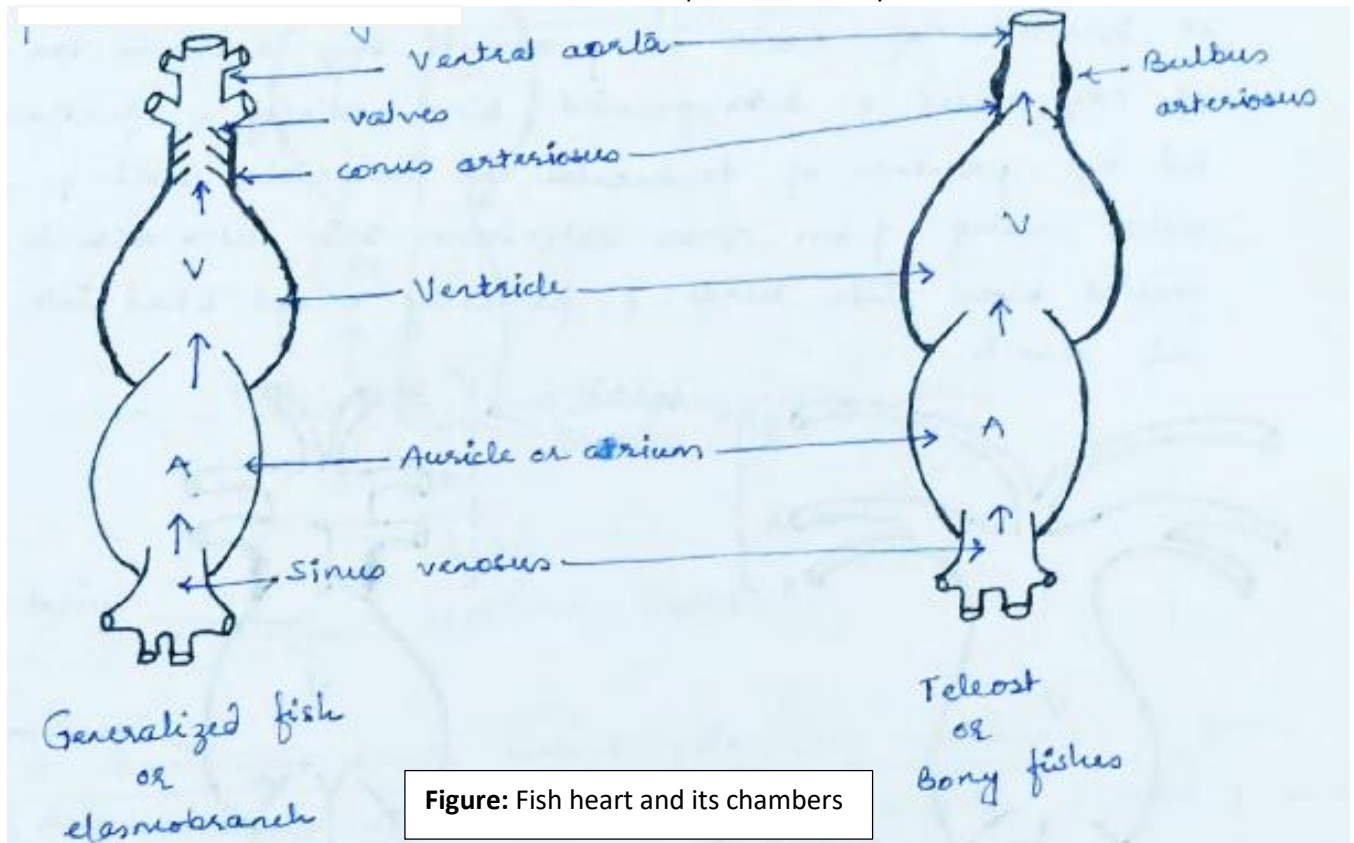 Ventral aorta
Bulbus
arteriosus
valves
conus arteriosus
V
V
Ventricle
Auricle or atrium
A
A
Sinus venosus
Generalized fish
or
elasmobranch
Teleost
or
Bony fishes
Figure: Fish heart and its chambers